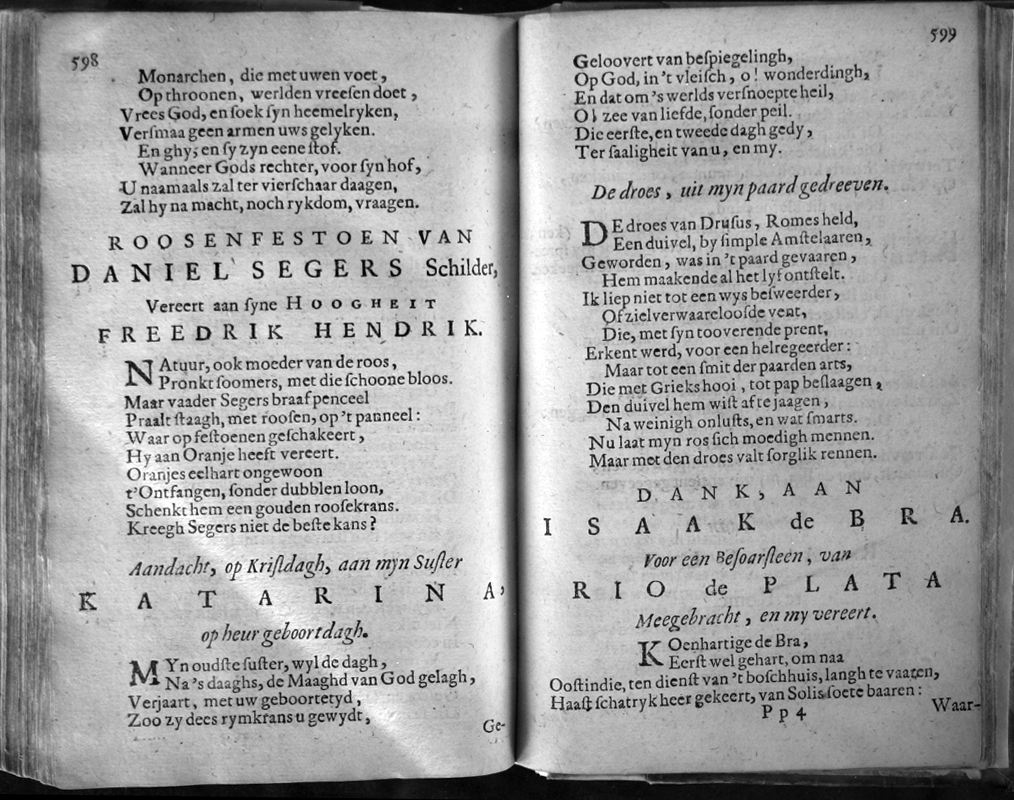 598
Monarchen, die met uwen voet,
Op throonen, werlden vreesen doet,
Vrees God, en soek syn heemelryken,
Versmaa geen armen uws gelyken.
En ghy, en sy zyn eene stof.
Wanneer Gods rechter, voor syn hof,
U naamaals zal ter vierschaar daagen,
Zal hy na macht, noch rykdom, vraagen.
ROOSENFESTOEN VAN
DANIEL SEGERS Schilder,
Vereert aan syne HOOGHEIT
FREEDRIK HENDRIK.
NAtuur, ook moeder van de roos,
Pronkt soomers, met die schoone bloos.
Maar vaader Segers braaf penceel
Praalt staagh, met roosen, op 't panneel:
Waar op festoenen geschakeert,
Hy aan Oranje heeft vereert.
Oranjes eelhart ongewoon
t'Ontfangen, sonder dubblen loon,
Schenkt hem een gouden roosekrans.
Kreegh Segers niet de beste kans?
Aandacht, op Kristdagh, aan myn Suster
KATARINA,
op heur geboortdagh.
MYn oudste suster, wyl de dagh,
Na's daaghs, de Maaghd van God gelagh,
Verjaart, met uw geboortetyd,
Zoo zy dees rymkrans u gewydt,
Ge-
599
Geloovert van bespiegelingh,
Op God, in 't vleisch, o! wonderdingh,
En dat om 's werlds versnoepte heil,
O! zee van liefde, sonder peil.
Die eerste, en tweede dagh gedy,
Ter saaligheit van u, en my.
De droes, uit myn paard gedreeven.
DE droes van Drusus, Romes held,
Een duivel, by simple Amstelaaren,
Geworden, was in 't paard gevaaren,
Hem maakende al het lyf ontstelt.
Ik liep niet tot een wys besweerder,
Of zielverwaareloosde vent,
Die, met syn tooverende prent,
Erkent werd, voor een helregeerder:
Maar tot een smit der paarden arts,
Die met Grieks hooi, tot pap beslaagen,
Den duivel hem wist af te jaagen,
Na weinigh onlusts, en wat smarts.
Nu laat myn ros sich moedigh mennen.
Maar met den droes valt sorglik rennen.
DANK, AAN
ISAAK de BRA.
Voor een Besoarsteen, van
RIO de PLATA
Meegebracht, en my vereert.
KOenhartige de Bra,
Eerst wel gehart, om naa
Oostindie, ten dienst van 't boschhuis, langh te vaaren,
Haast schatryk heer gekeert, van Solis soete baaren:
Pp 4
Waar-